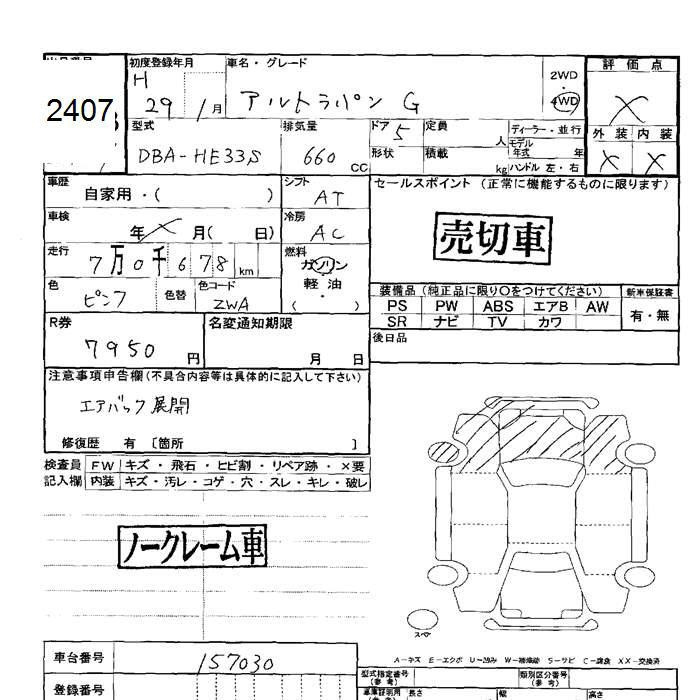 2407
初度登録年月
H
29 1月
車名・グレード
アルトラパン G
2WD
・
4WD
評価点
X
外装 内装
X X
型式
DBA-HE33S
排気量
660
CC
ドア 5
形状
定員
人
積載
kg
ディーラー・並行
モデル
年式 年
ハンドル 左・右
車歴
自家用・( )
シフト
AT
車検
年 X 月( 日)
冷房
AC
走行
7万0千678km
燃料
ガソリン
軽油
・
( )
色
ピンク
色替
色コード
ZWA
R券
7950円
名変通知期限
月 日
セールスポイント (正常に機能するものに限ります)
売切車
装備品(純正品に限り○をつけてください)
PS PW ABS エアB AW
SR ナビ TV カワ
新車保証書
有・無
後日品
注意事項申告欄(不具合内容等は具体的に記入して下さい)
エアバック展開
修復歴 有 〔箇所 〕
検査員 FW キズ・飛石・ヒビ割・リペア跡・×要
記入欄 内装 キズ・汚レ・コゲ・穴・スレ・キレ・破レ
ノークレーム車
スペア
A-キズ E-エクボ U-凹み W-補修跡 S-サビ C-腐食 XX-交換済
車台番号
157030
登録番号
型式指定番号
(参考)
類別区分番号
(参考)
長さ
幅
高さ